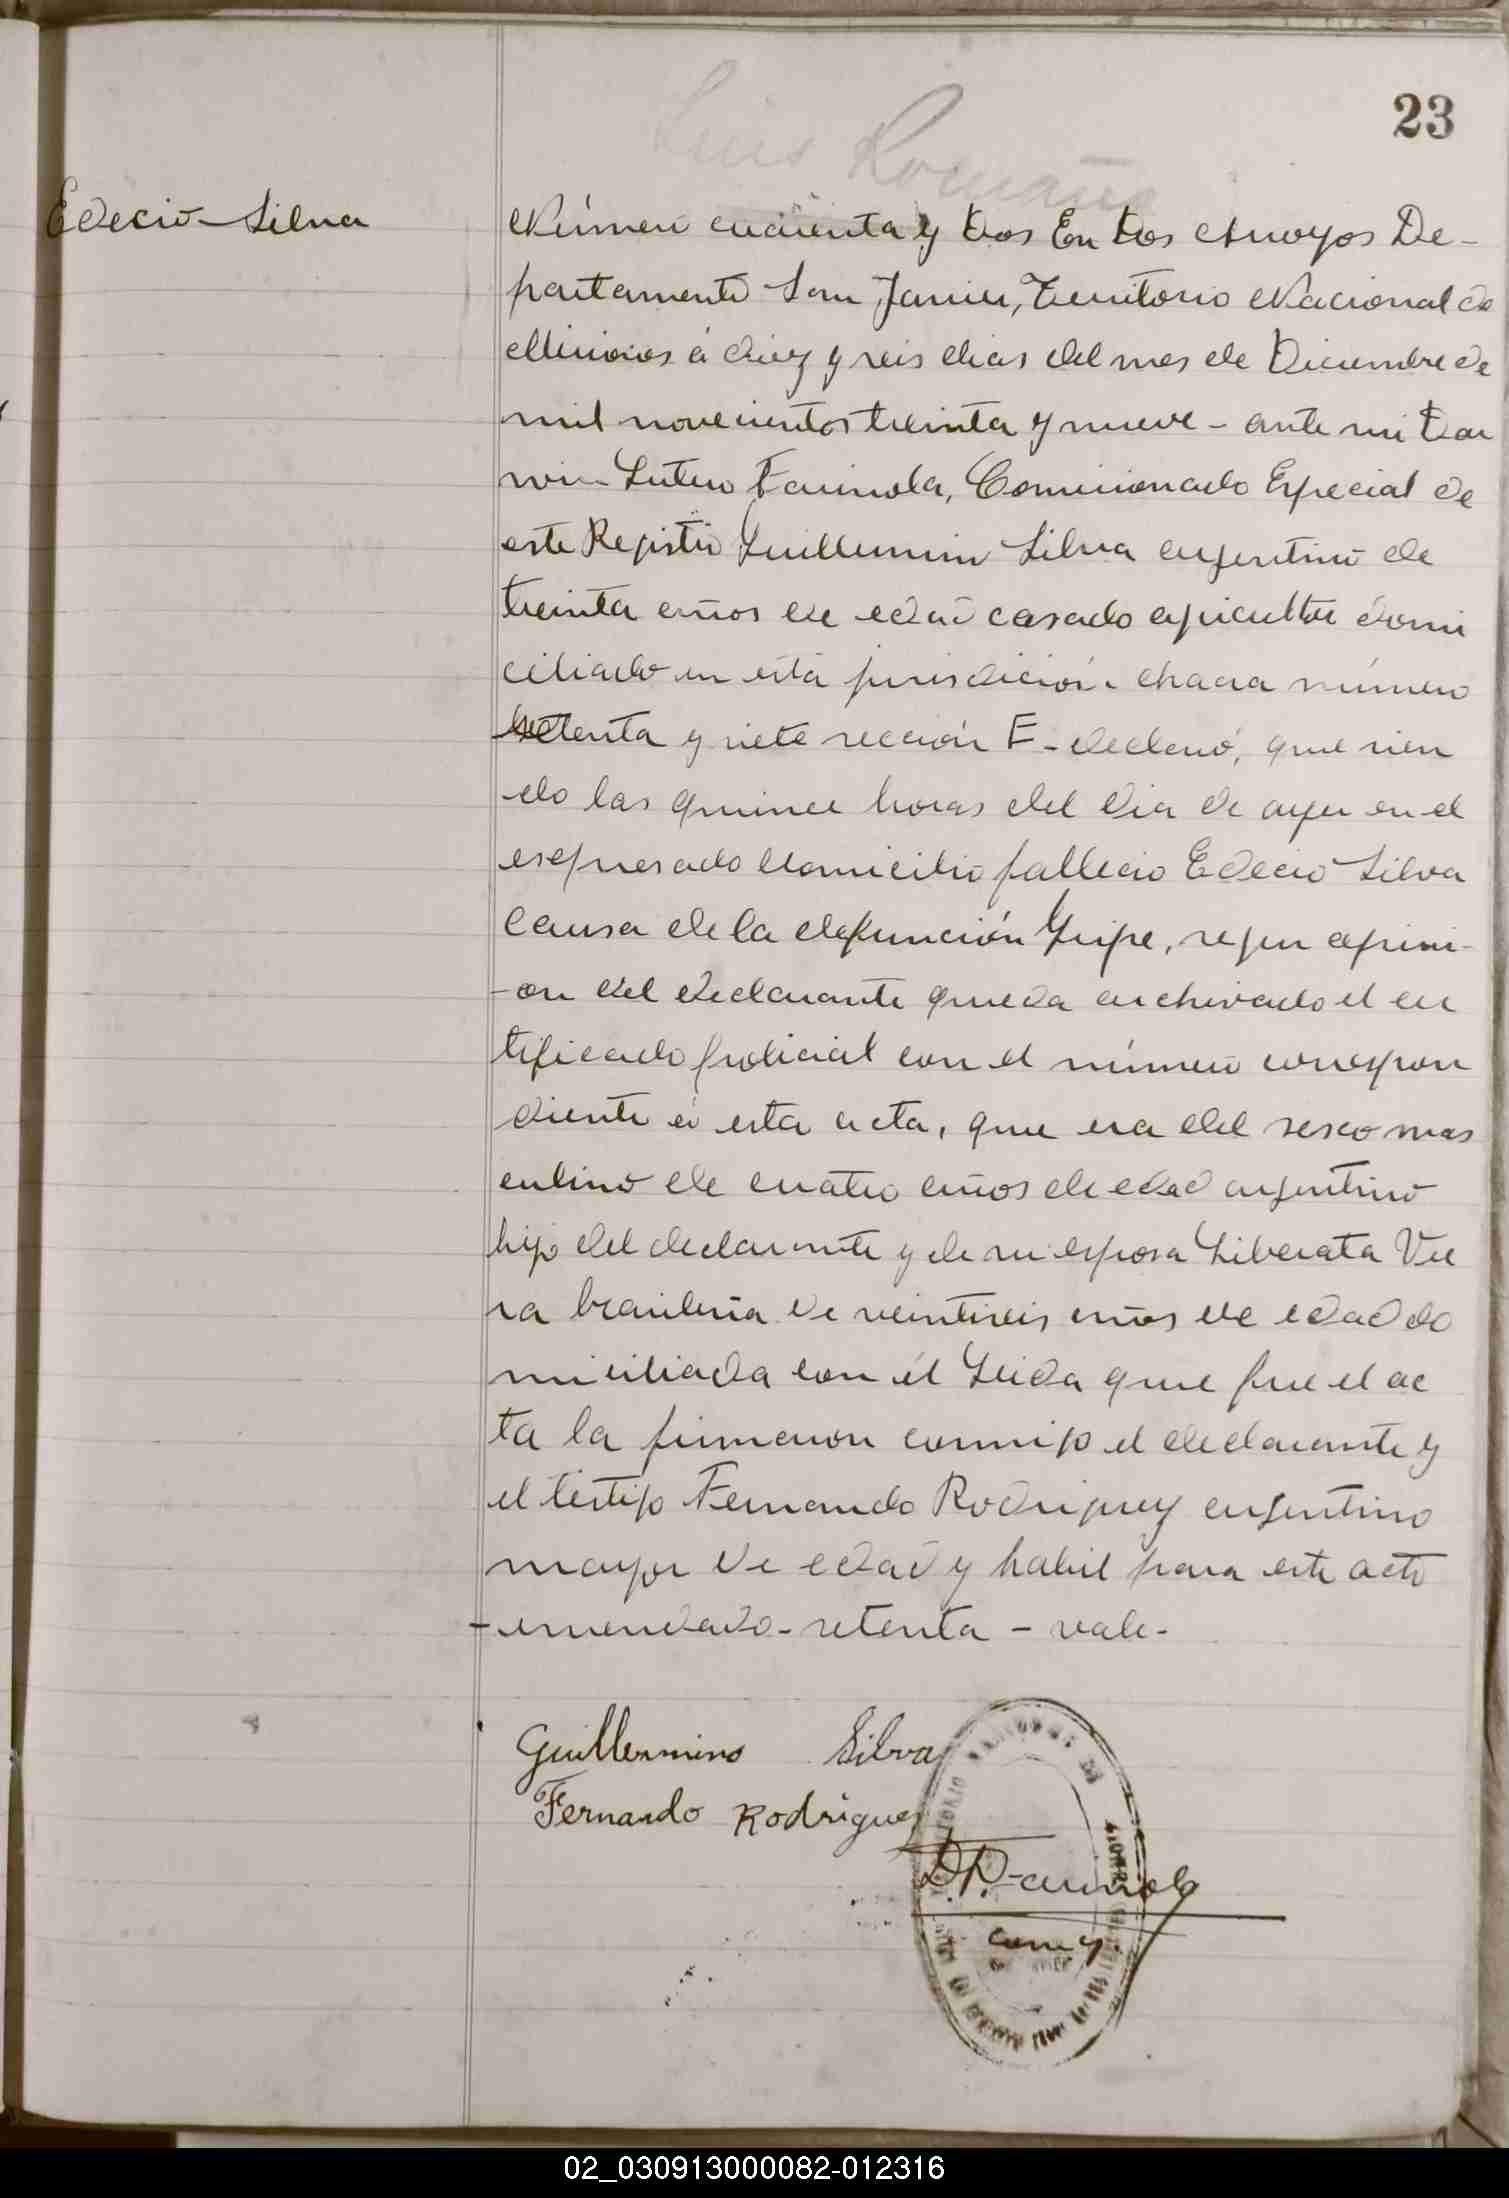 23
Luis Romaña
Edecio Silva
Número cuarenta y dos En Dos Arroyos De-
partamento San Javier, Territorio Nacional de
Misiones á diez y seis dias del mes de Diciembre de
mil novecientos treinta y nueve - ante mi Dar
win Lutero Farinola, Comisionado Especial de
este Registro Guillermino Silva argentino de
treinta años de edad casado agricultor domi
ciliado en esta jurisdicción chacra número
setenta y siete sección F - declaró, que sien
do las quince horas del dia de ayer en el
espresado domicilio fallecio Edecio Silva
causa de la defunción Gripe, segun opini-
-on del declarante queda archivado el cer
tificado policial con el número correspon
diente á esta acta, que era del sexo mas
culino de cuatro años de edad argentino
hijo del declarante y de su esposa Liberata Vie
ra brasileña de veintiseis años de edad do
miciliada con él Leida que fue el ac
ta la firmaron conmigo el declarante y
el testigo Fernando Rodriguez argentino
mayor de edad y habil para este acto
-emendado - setenta - vale-
Guillermino Silva
Fernando Rodriguez
D.L. Farinola
02_030913000082-012316